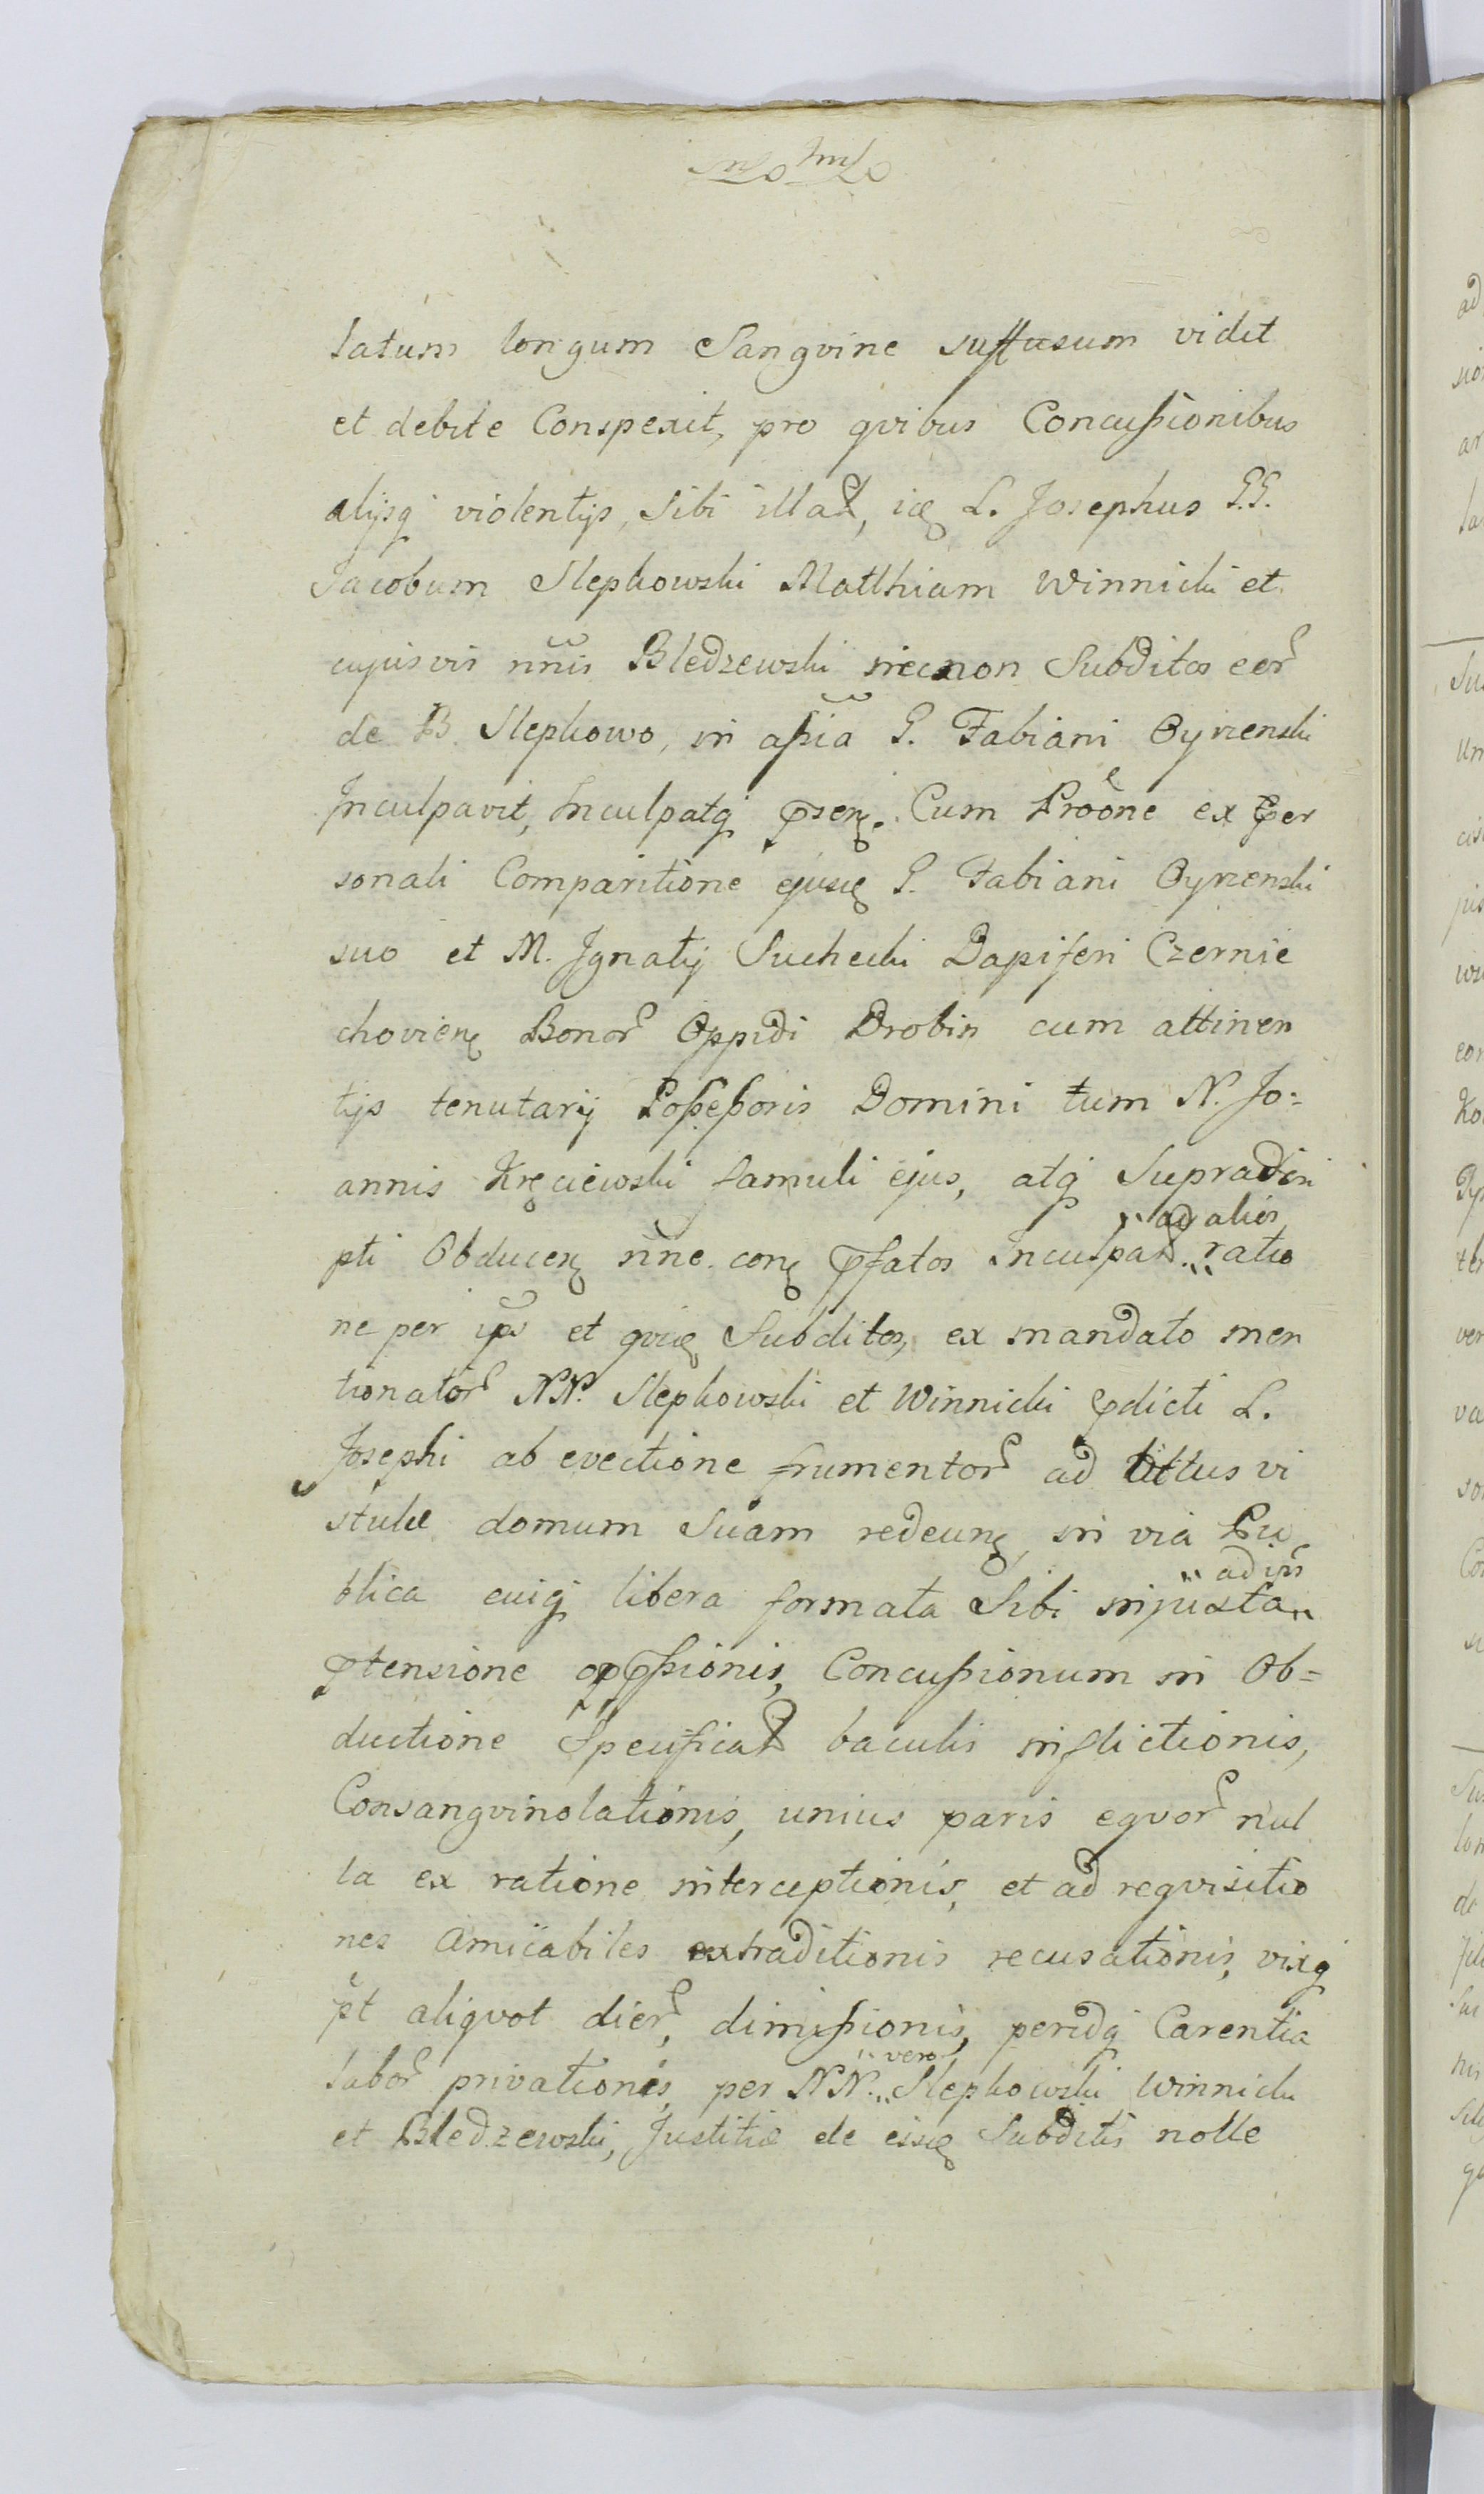 latum longum Sangvine suffusum vidit
et debite Conspexit, pro qvibus Concussionibus
alijsq violentijs, Sibi illat, id L. Josephus G.G.
Jacobum Slepkowski Matthiam Winnicki et
cujusvis nnis Bledzewski necnon Subditos eor
de B. Slepkowo, in assia G. Fabiani Oyrzenski
Inculpavit, Inculpatq psen. Cum Proone ex per
sonali Comparitione ejusd G. Fabiani Oyrzenski
suo et M. Ignatij Suchecki Dapiferi Czernie
chovien Bonor Oppidi Drobin cum attinen
tijs tenutarij Possessoris Domini tum N. Jo=
annis Kręciewski famuli ejus, atq Supradscri
pti Obducen nne con pfatos inculpat ratio
ad alios
ne per ips et qvid Subditos, ex mandato men
tionator NN. Slepkowski et Winnicki pdicti L.
Josephi ab evectione frumentor ad littus vi
stulæ domum Suam redeun, in via Pu
blica cuiq libera formata Sibi injusta
ad ips
ptensione oppssionis, Concussionum in Ob=
ductione Specificat baculis inflictionis,
Consangvinolationis, unius paris eqvor nul
la ex ratione interceptionis, et ad reqvisitio
nes amicabiles extraditionis recusationis, vixq
pt aliqvot dier, dimissionis, perindq Carentia
labor privationis, per NN. Slepkowski Winnicki
vero
et Bledzewski, Justitiæ de eisd Subditis nolle